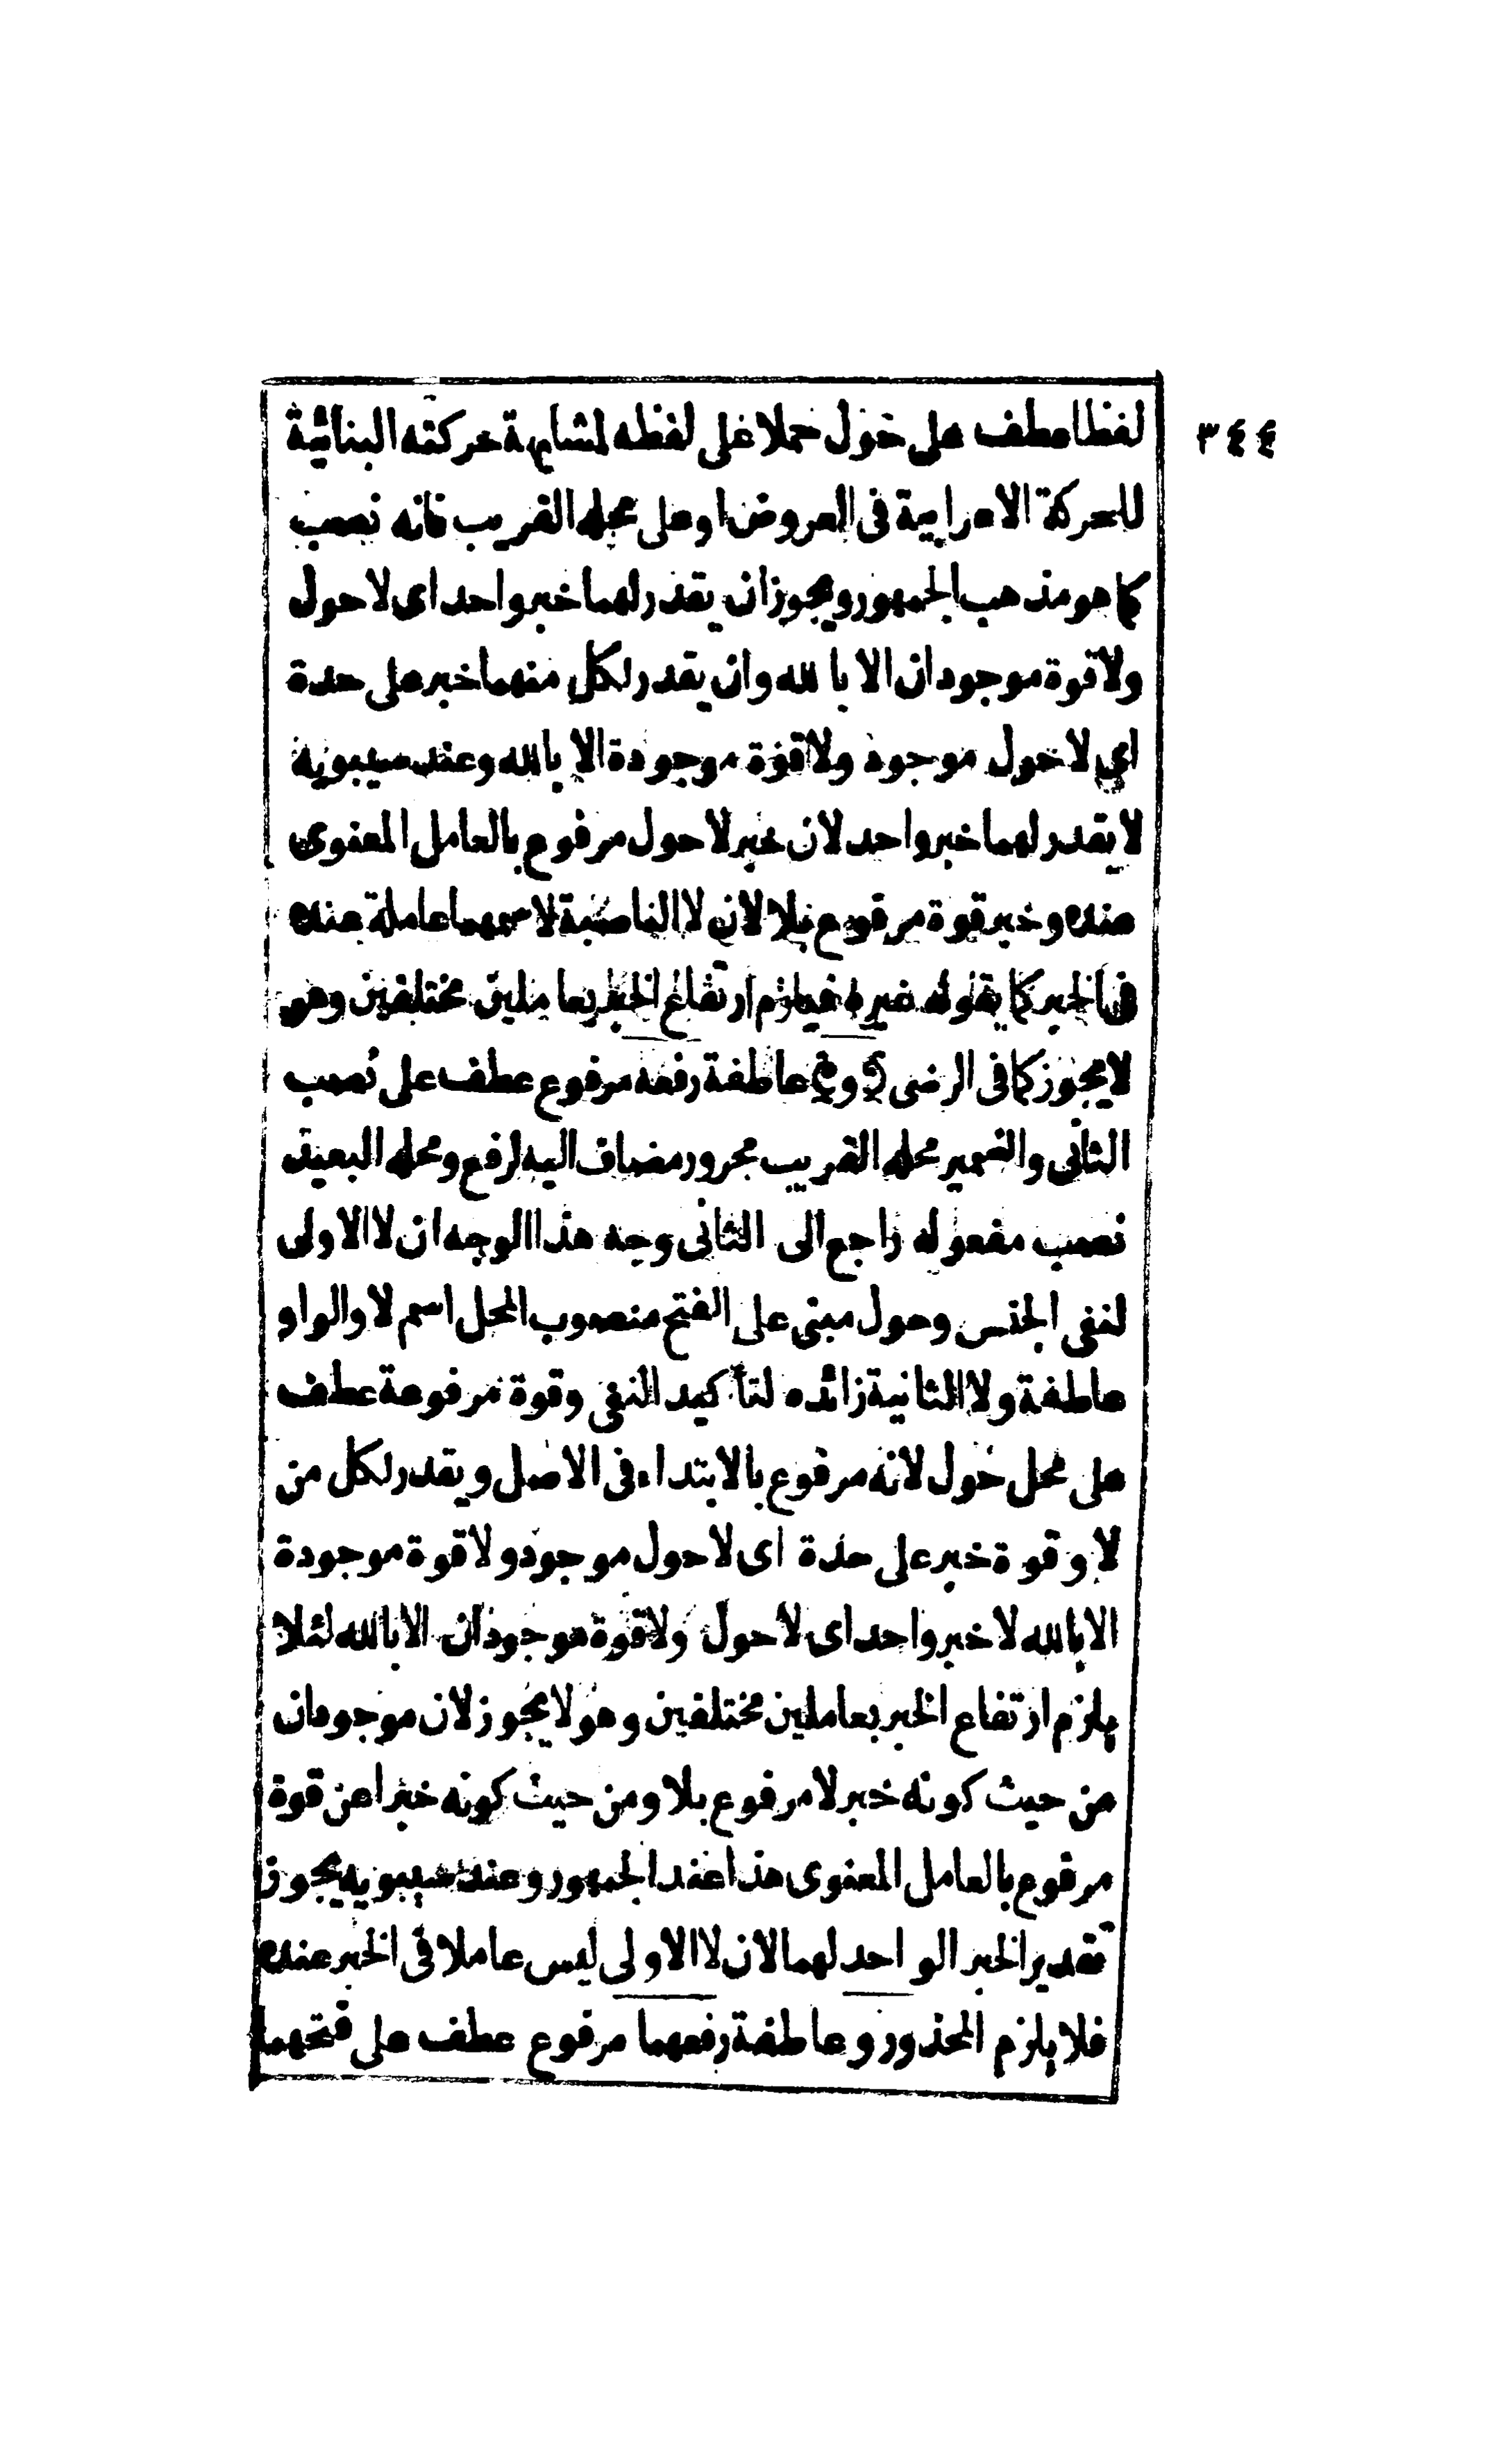 ٣٤٤
لفظا عطف على حول حملا على لفظه لمشابهة حركته البنائية
للحركة الاعرابية فى العروض او على محله القريب فانه نصب
كما هو مذهب الجمهور ويجوز ان يقدر لهما خبر واحد اى لا حول
ولا قوة موجودان الا بالله وان يقدر لكل منهما خبر على حدة
اى لا حول موجود ولا قوة موجودة الا بالله وعند سيبويه
لا يقدر لهما خبر واحد لان خبر لا حول مرفوع بالعامل المعنوى
عنده وخبر قوة مرفوع بلا لان لا الناصبة لاسمهما عاملة عنده
فى الخبر كما يقوله غيره فيلزم ارتفاع الخبر بعاملين مختلفين وهو
لا يجوز كما فى الرضى (و) عاطفة رفعه مرفوع عطف على نصب
الثانى والضمير محله القريب مجرور مضاف اليه لرفع ومحله البعيد
نصب مفعوله راجع الى الثانى وجه هذا الوجه ان لا الاولى
لنفى الجنس وحول مبنى على الفتح منصوب المحل اسم لا والواو
عاطفة ولا الثانية زائده لتأكيد النفى وقوة مرفوعة عطف
على محل حول لانه مرفوع بالابتداء فى الاصل ويقدر لكل من
لا وقوة خبر على حدة اى لا حول موجود ولا قوة موجودة
الا بالله لا خبر واحد اى لا حول ولا قوة موجودان الا بالله لئلا
يلزم ارتفاع الخبر بعاملين مختلفين وهو لا يجوز لان موجودان
من حيث كونه خبر لا مرفوع بلا ومن حيث كونه خبرا عن قوة
مرفوع بالعامل المعنوى هذا عند الجمهور وعند سيبويه يجوز
تقدير الخبر الواحد لهما لان لا الاولى ليس عاملا فى الخبر عنده
فلا يلزم المحذور وعاطفة رفعهما مرفوع عطف على فتحهما